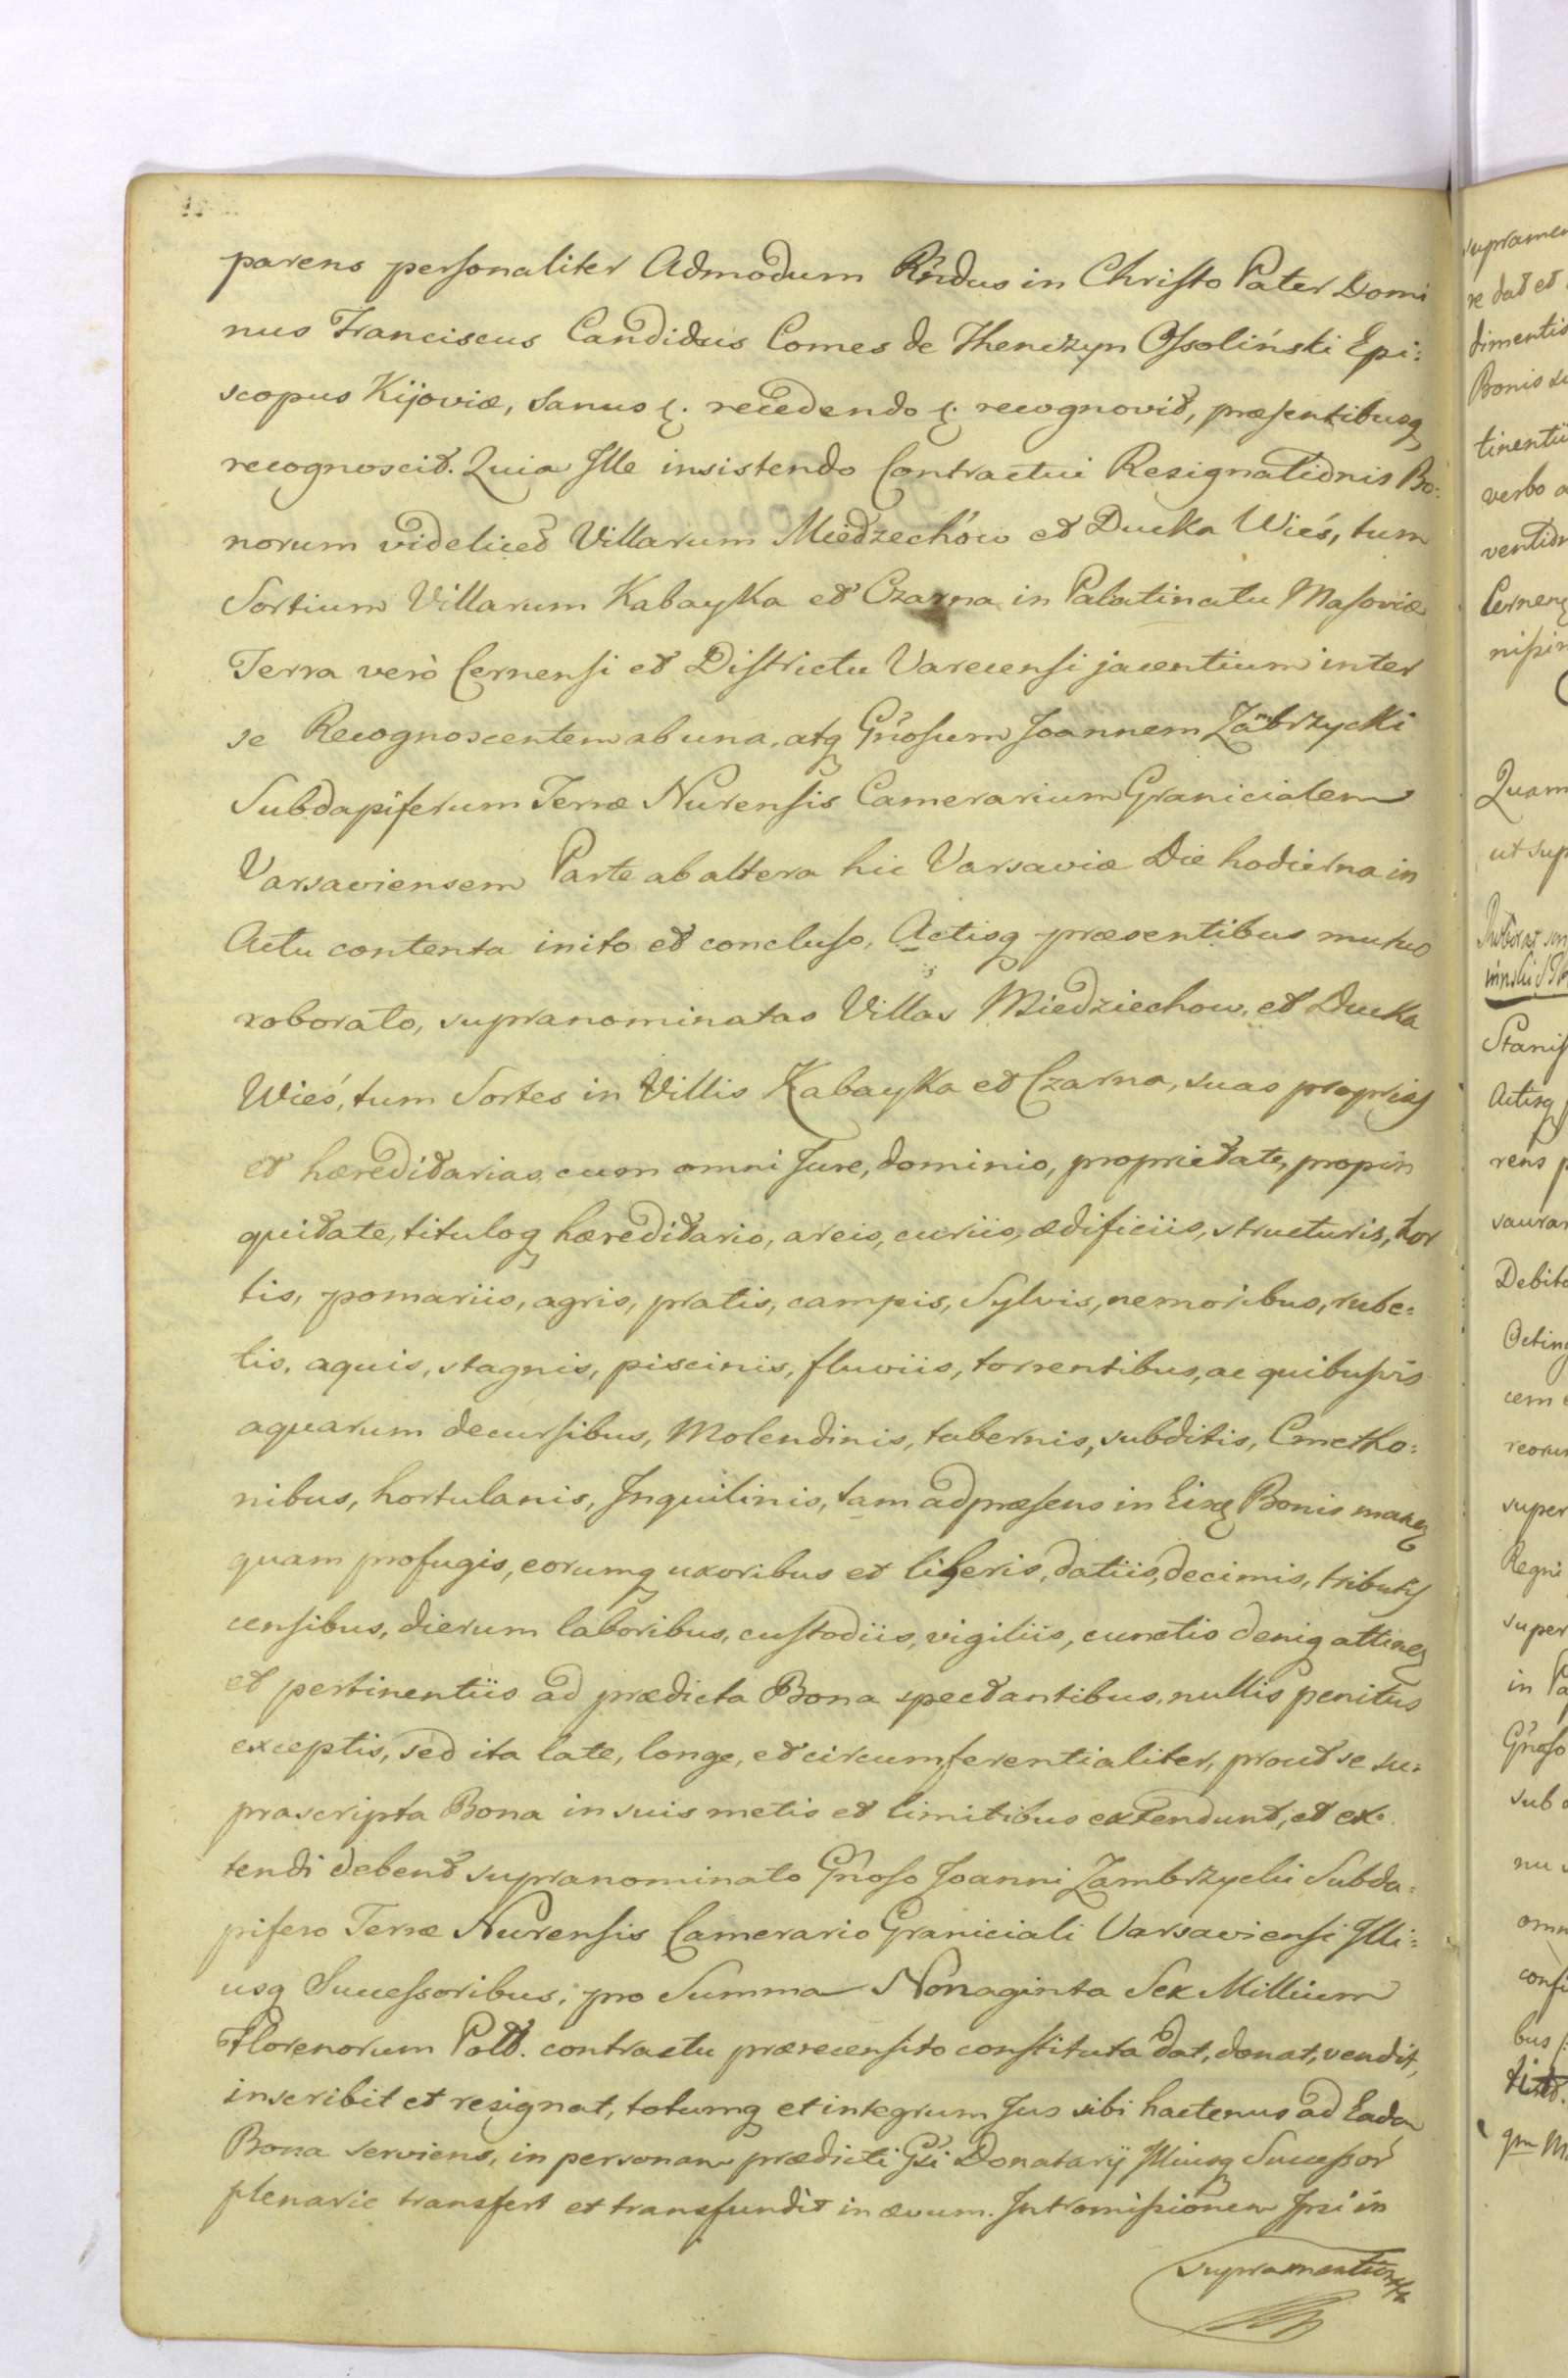 parens personaliter Admodum Rndus in Christo Pater Domi
nus Franciscus Candidus Comes de Thenczyn Ossoliński Epi:
scopus Kijoviæ, sanus &. recedendo &. recognovit, præsentibusq
recognoscit. Quia Ille insistendo Contractui Resignationis Bo:
norum videlicet Villarum Miedzechów et Ducka Wieś, tum
Sortium Villarum Kabayka et Czarna in Palatinatu Masoviæ
Terra verò Cernensi et Districtu Varecensi jacentium inter
se Recognoscentem ab una, atq Gnosum Joannem Zambrzycki
Subdapiferum Terræ Nurensis Camerarium Granicialem
Varsaviensem Parte ab altera hic Varsaviæ Die hodierna in
Actu contenta inito et concluso, Actisq præsentibus mutuo
roborato, supranominatas Villas Miedziechow, et Ducka
Wieś, tum Sortes in Villis Kabayka et Czarna, suas proprias
et hæreditarias, cum omni Jure, dominio, proprietate, propin
quitate, tituloq hæreditario, areis, curiis, ædificiis, structuris, hor
tis, pomariis, agris, pratis, campis, Sylvis, nemoribus, rube:
tis, aquis, stagnis, piscinis, fluviis, torrentibus, ac quibusvis
aquarum decursibus, Molendinis, tabernis, subditis, Cmetho:
nibus, hortulanis, Inquilinis, tam ad præsens in Eisq Bonis maneq
quam profugis, eorumq uxoribus et liberis, datiis, decimis, tributis
censibus, dierum laboribus, custodiis, vigiliis, cunctis deniq attineq
et pertinentiis ad prædicta Bona spectantibus, nullis penitus
exceptis, sed ita late, longe, et circumferentialiter, prout se su:
prascripta Bona in suis metis et limitibus extendunt, et ex:
tendi debent supranominato Gnoso Joanni Zambrzycki Subda:
pifero Terræ Nurensis Camerario Graniciali Varsaviensi Illi:
usq Successoribus, pro Summa Nonaginta Sex Millium
Florenorum Poll. contractu præcensito constituta dat, donat, vendit,
inscribit et resignat, totumq et integrum Jus sibi hactenus ad Eadem
Bona serviens, in personam prædicti Gsi Donatarij Illiusq Successor
plenarie transfert et transfundit in ævum. Intromissionem Ipsi in
supramention